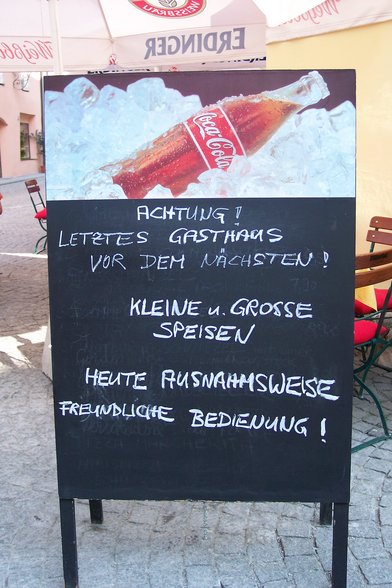 WEISSBRÄU
ERDINGER
Coca-Cola
ACHTUNG!
LETZTES GASTHAUS
VOR DEM NÄCHSTEN!
KLEINE u. GROSSE
SPEISEN
HEUTE AUSNAHMSWEISE
FREUNDLICHE BEDIENUNG!